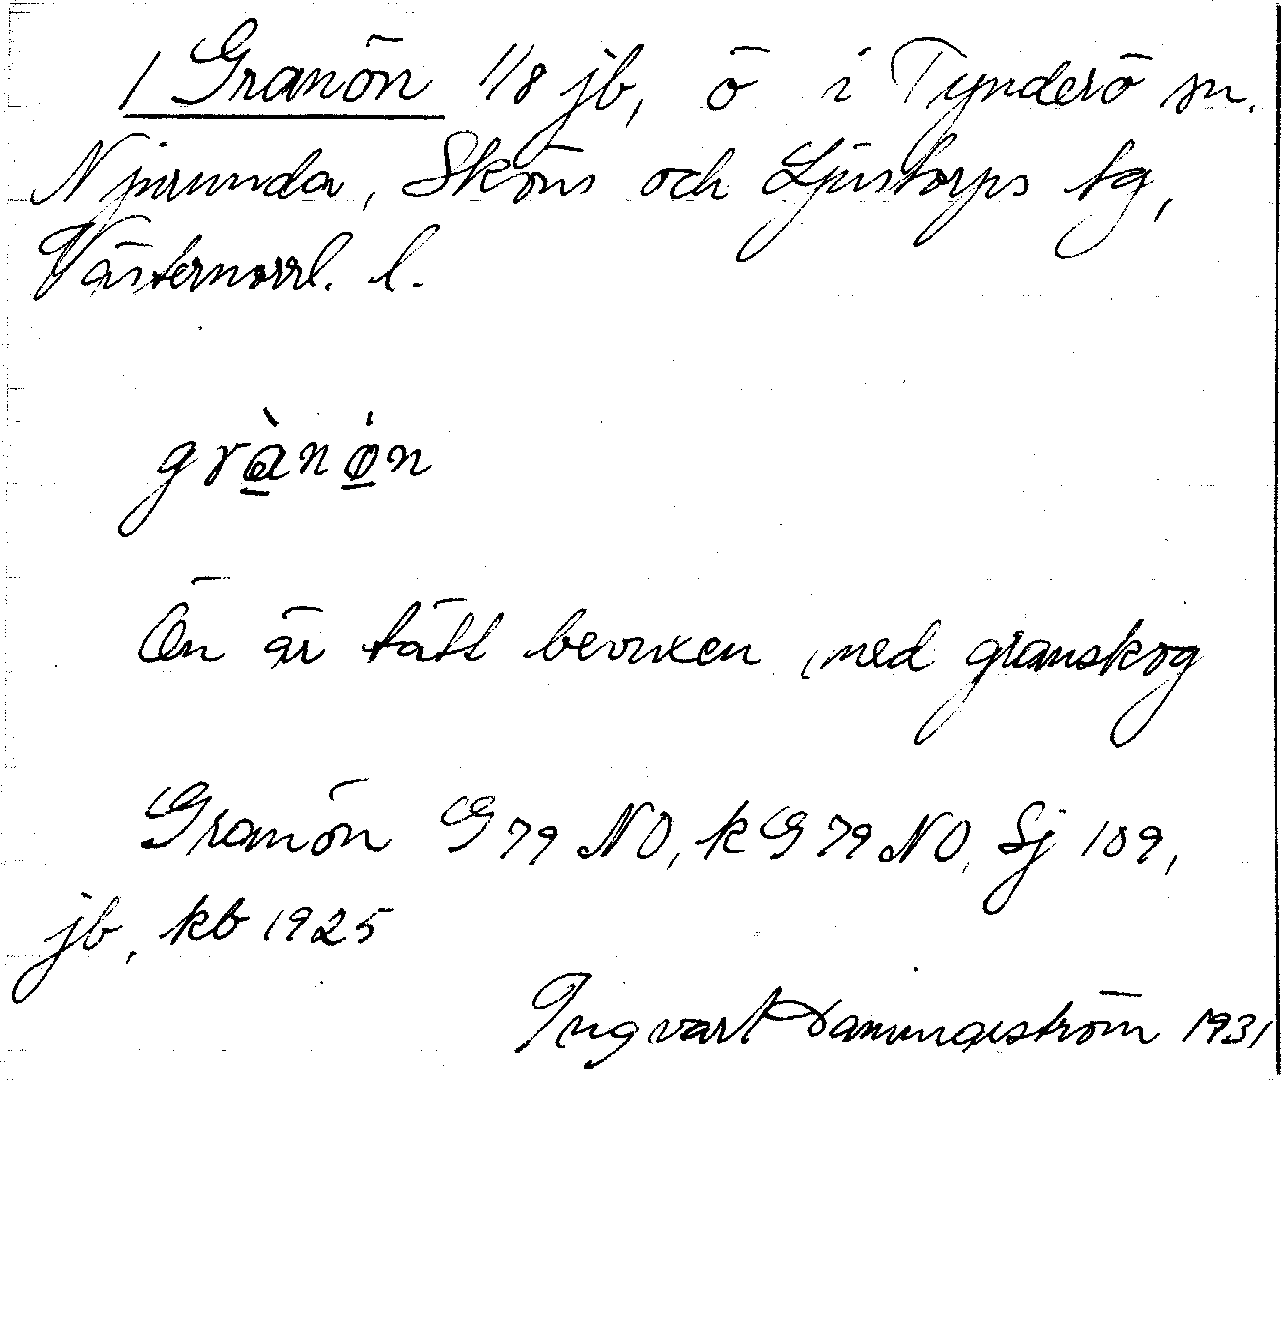 1 Granön 1/8 jb, ö i Tynderö sn.
Njurunda, Sköns och Ljustorps tg,
Västernorrl. l.
gràn ø̇n
Ön är tätt bevuxen med granskog
Granön G 79 NO, k G 79 NO, Sj 109,
jb, kb 1925
Ingvart 1931